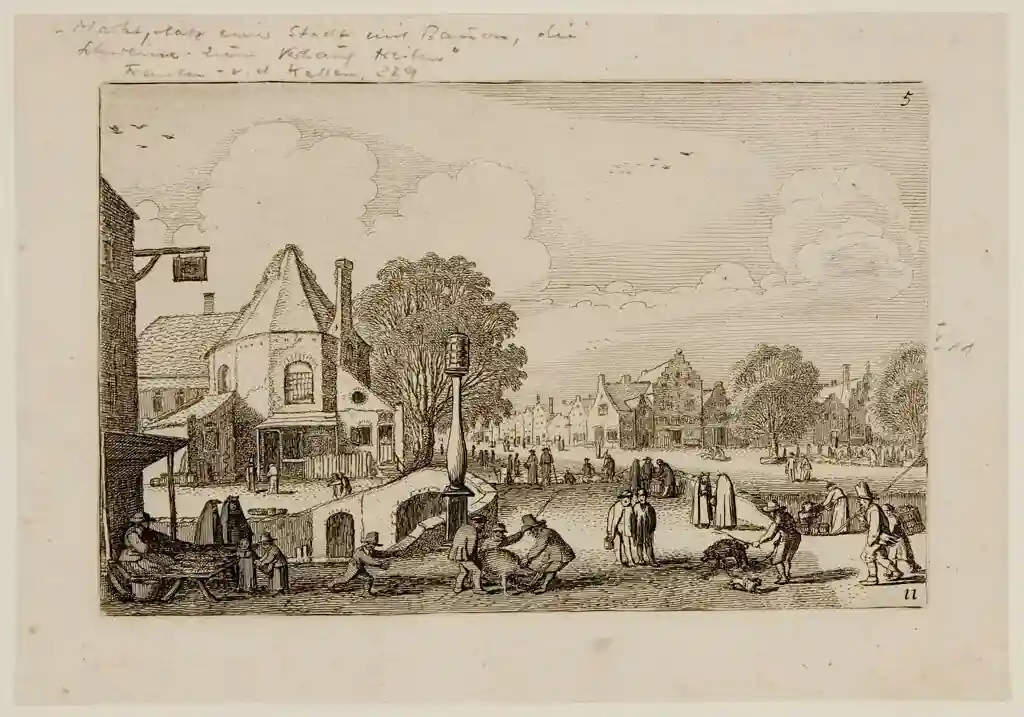 „Marktplatz einer Stadt mit Bauern, die
Schweine zum Verkauf treiben“
Franken - v. d. Kellen, 229
5
11